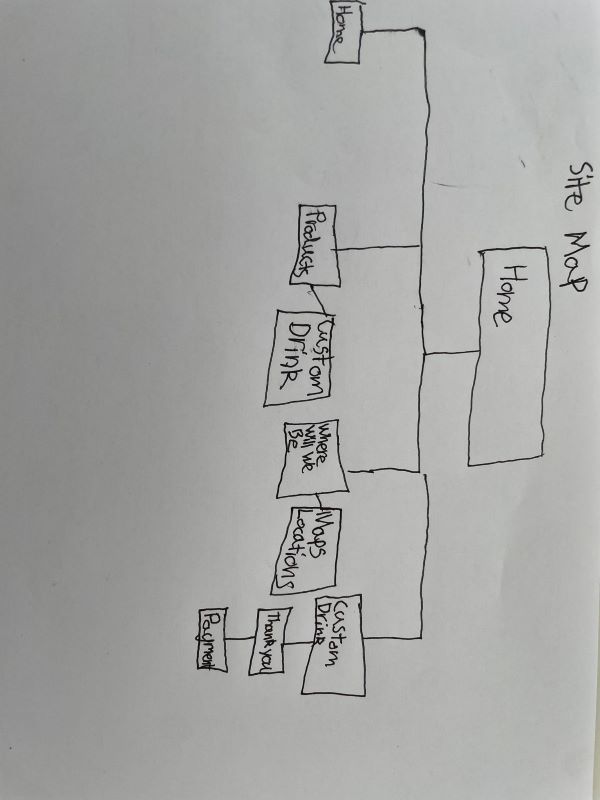 Site Map
Home
Home
Products
Custom
Drink
Where
Will We
Be
Maps
Locations
Custom
Drink
Thank you
Payment